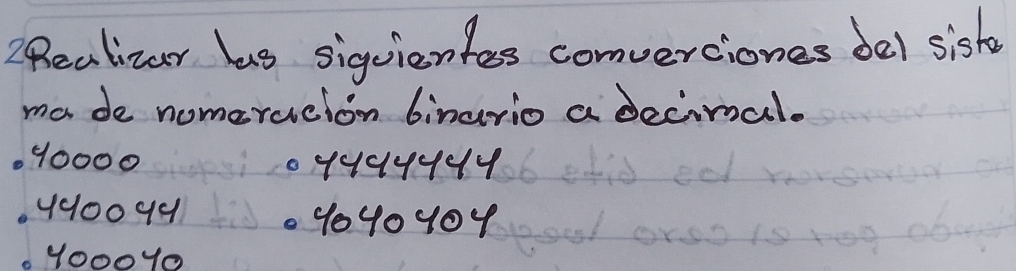 2 Realizar las siguientes comverciones del siste
ma de nomeración binario a decimal.
• 10000 • 1111111
• 110011 • 1010101
• 100010